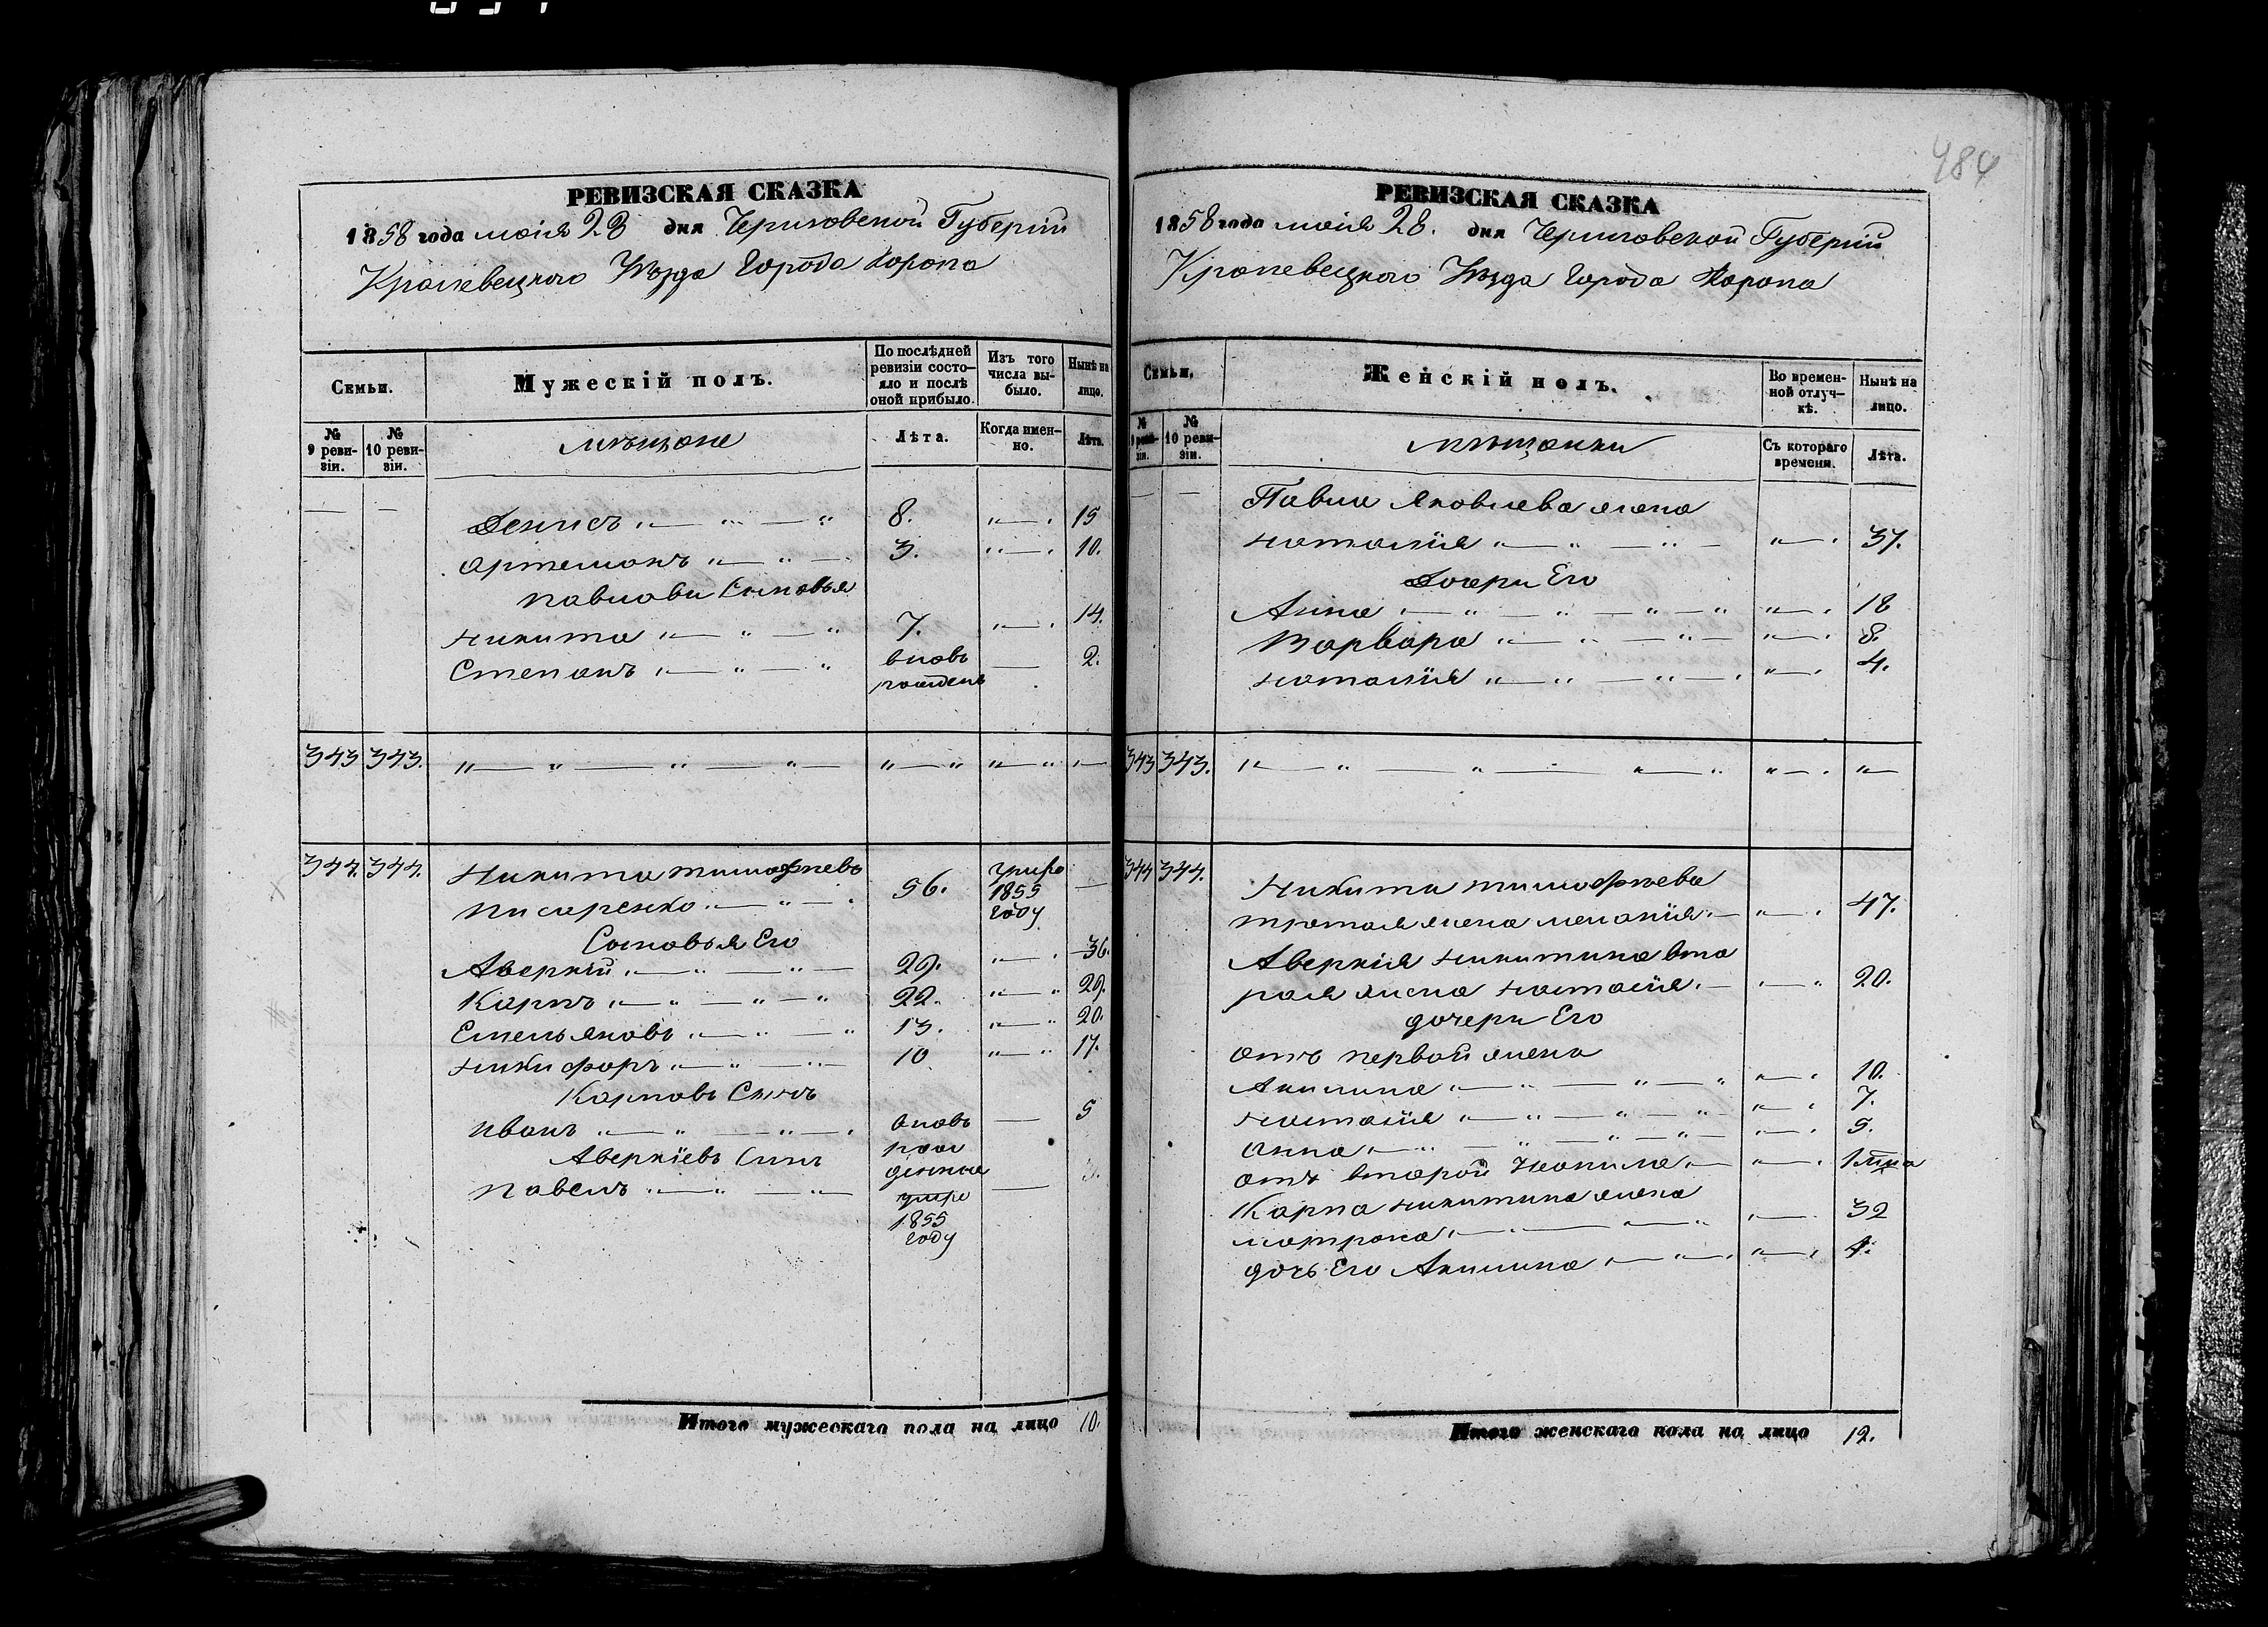 484
РЕВИЗСКАЯ СКАЗКА
1858 года маія 28 дня Черниговской Губерніи
Кролевецкого Уѣзда Города Коропа
Семьи.
Мужескій полъ.
По послѣдней ревизіи состояло и послѣ оной прибыло.
Изъ того числа выбыло.
Нынѣ на лицо.
№ 9 ревизіи.
№ 10 ревизіи.
мѣщане
Лѣта.
Когда именно.
Лѣта.
— — Денисъ 8. 15
Артемонъ 3. 10.
Павловы Сыновья
Никита 7. 14.
Степанъ вновь рожденъ — 2.
343 343.
344. 344. Никита тимофѣевъ
Писаренко 56. умре 1855 году —
Сыновья Его
Аверкій 29. 36.
Карпъ 22. 29.
Емельяновъ 13. 20.
Никифоръ 10 17.
Карповъ Сынъ
Иванъ вновь — 5
Аверкіевъ Сынъ рож
Павелъ денные — 3.
умре
1855
году
Итого мужескаго пола на лицо 10.
РЕВИЗСКАЯ СКАЗКА
1858 года маія 28. дня Черниговской Губерніи
Кролевецкого Уѣзда Города Коропа
Семьи.
Женскій полъ.
Во временной отлучкѣ.
Нынѣ на лицо.
№ 9 ревизіи.
№ 10 ревизіи.
мѣщанки
Съ котораго времени.
Лѣта.
— — Павла Яковлева жена
Наталія 37.
Дочери Его
Анна 18
Варвара 8.
Наталія 4.
343 343.
344 344. Никиты тимофѣева
третая жена меланія 47.
Аверкія Никитина вта
рая жена Настасія 20.
дочери Его
отъ первой жены
Акилина 10.
Настасія 7.
Анна 5.
отъ второй 1
Карпа Никитина жена
матрона 32
дочь Его Акилина 4.
Итого женскаго пола на лицо 12.